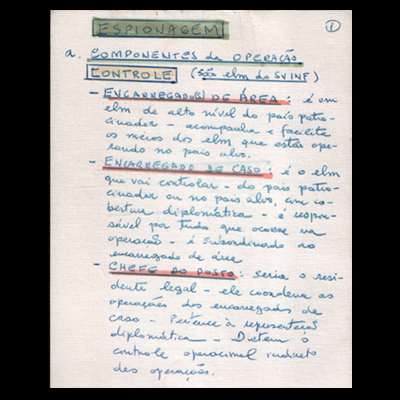 ESPIONAGEM
1
a. COMPONENTES da OPERAÇÃO
CONTROLE (são elm do SVINF)
- ENCARREGADO(S) DE ÁREA: é um
elm de alto nível do país patro-
cinador - acompanha e facilita
os meios dos elm que estão ope-
rando no país alvo.
- ENCARREGADO DE CASO: é o elm
que vai controlar - do país patro-
cinador ou no país alvo, em co-
bertura diplomática - é respon-
sável por tudo que ocorre na
operação - é subordinado ao
encarregado de área
- CHEFE DO POSTO: seria o resi-
dente legal - ele coordena as
operações dos encarregados de
caso - Pertence à representação
diplomática - Detém o
controle operacional indireto
das operações.